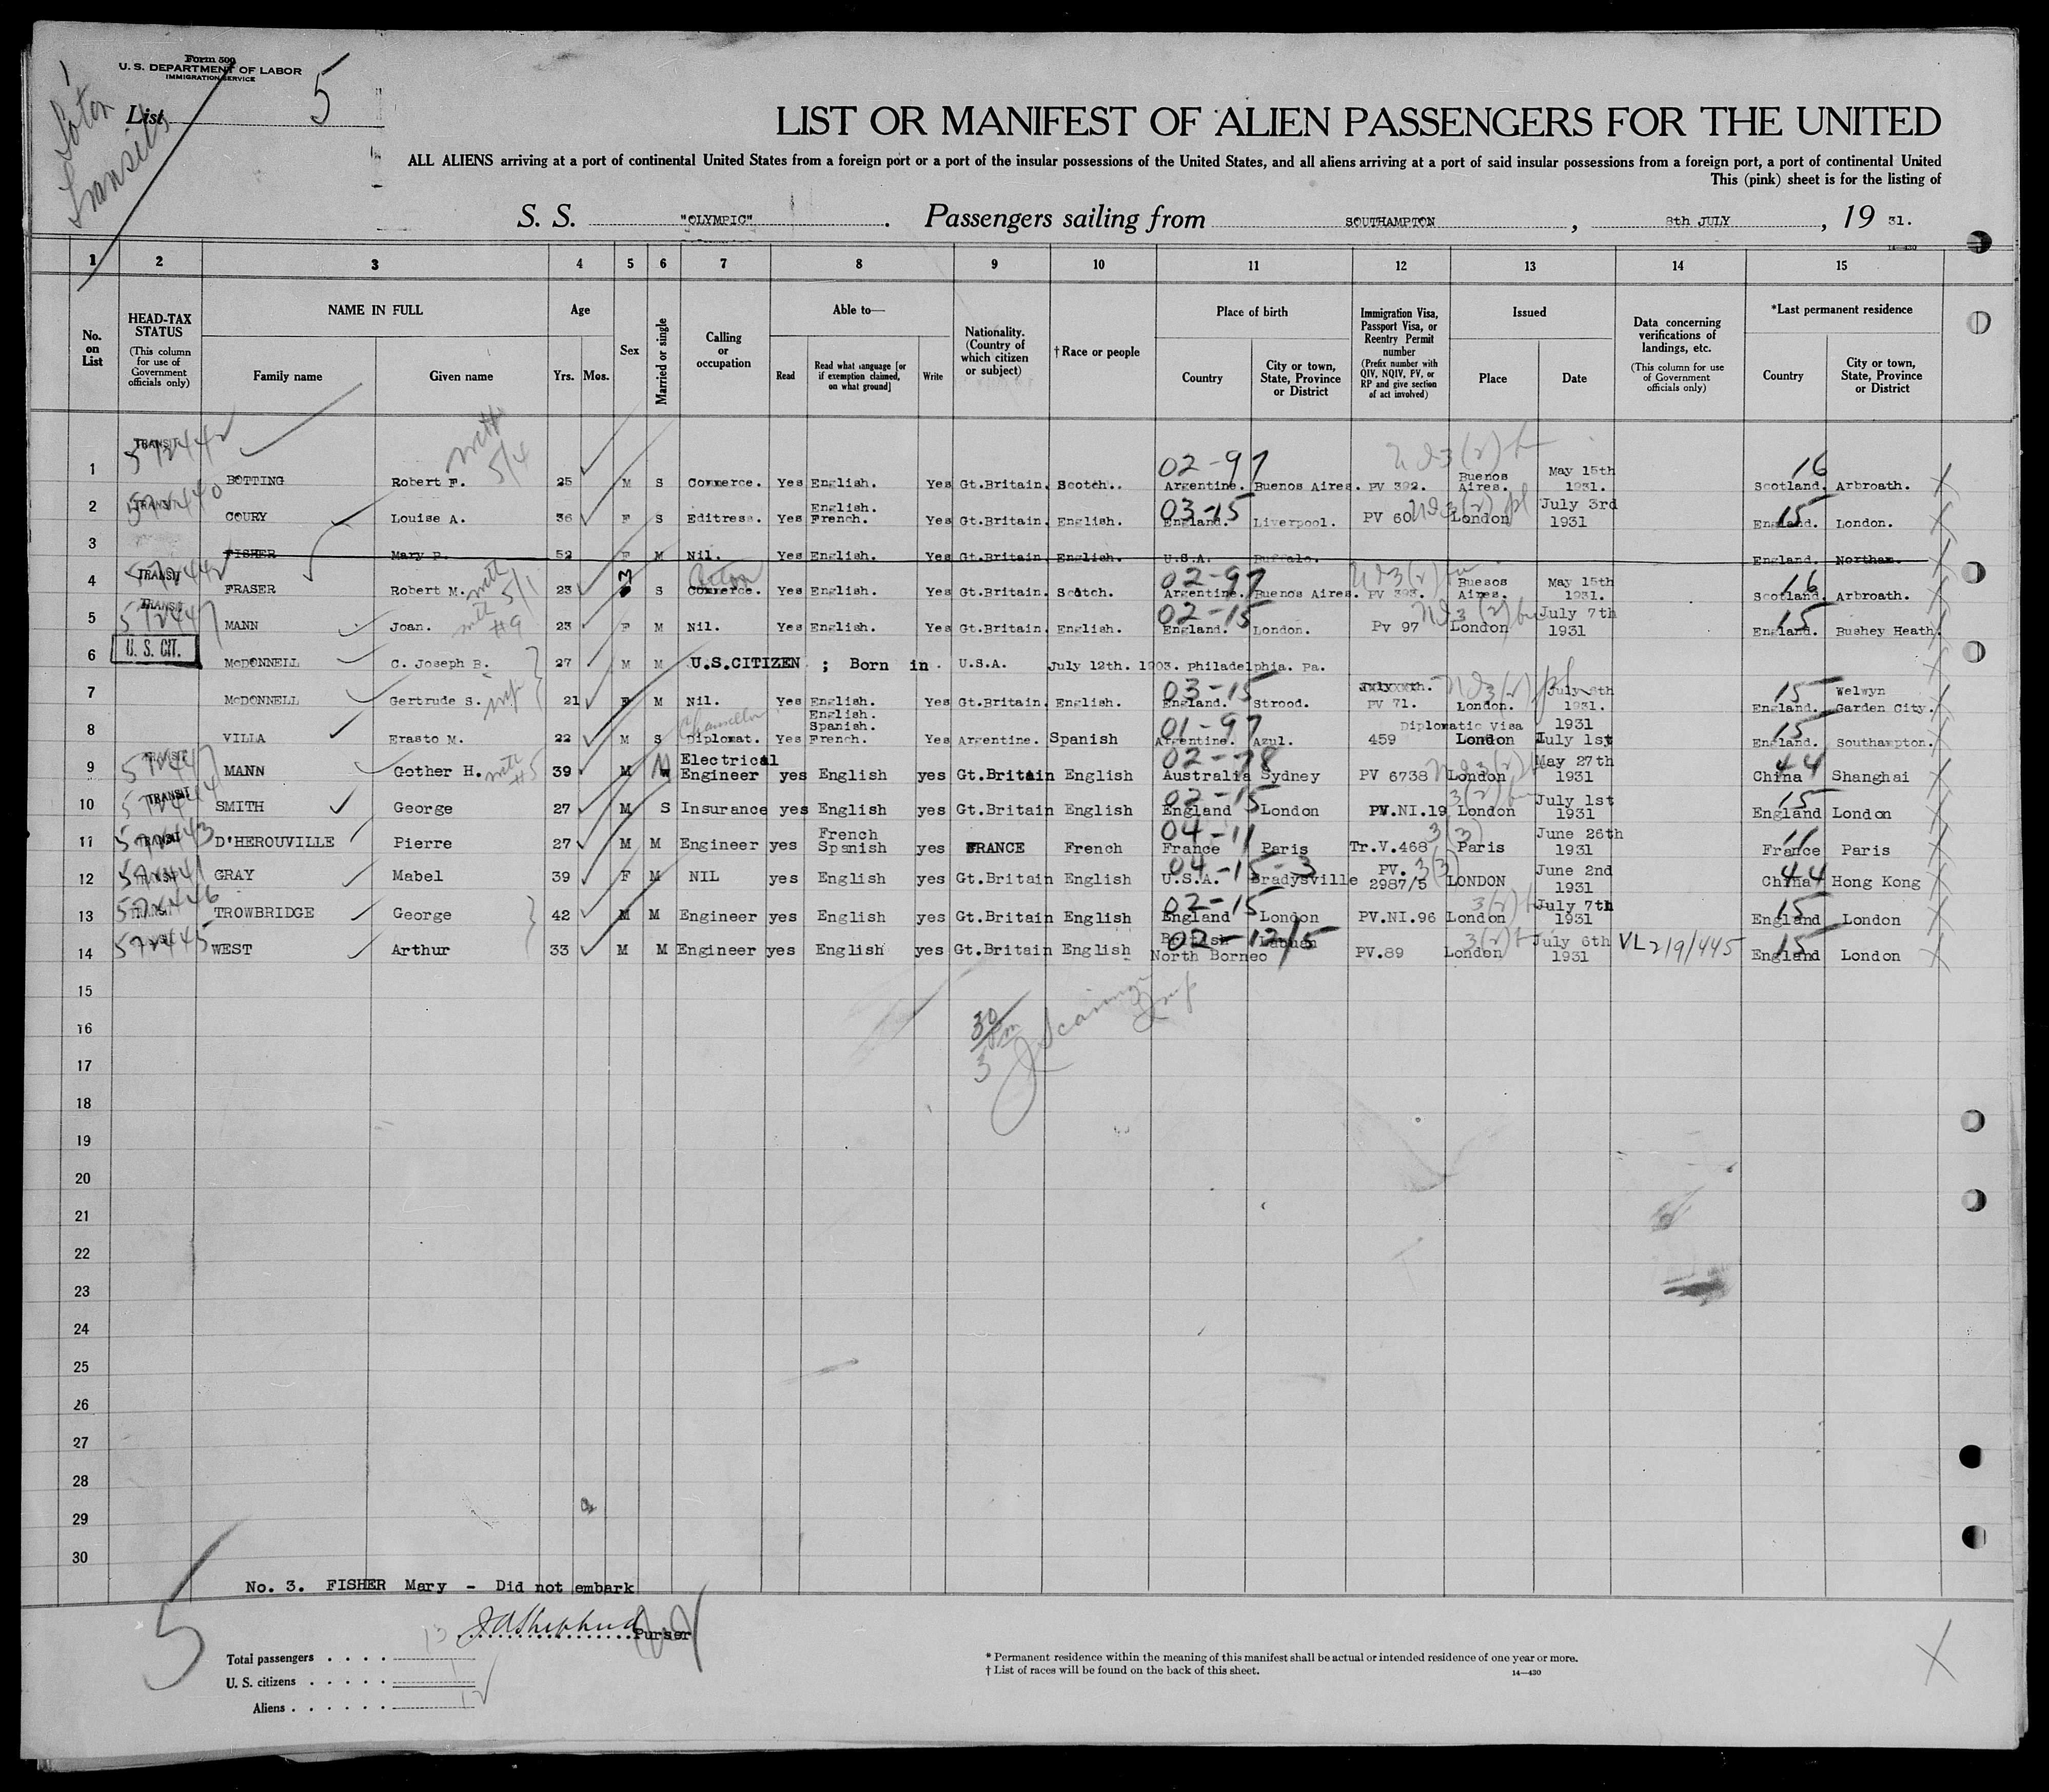 Form 500
U. S. DEPARTMENT OF LABOR
IMMIGRATION SERVICE
List 5
LIST OR MANIFEST OF ALIEN PASSENGERS FOR THE UNITED
ALL ALIENS arriving at a port of continental United States from a foreign port or a port of the insular possessions of the United States, and all aliens arriving at a port of said insular possessions from a foreign port, a port of continental United
This (pink) sheet is for the listing of
S. S. "OLYMPIC". Passengers sailing from SOUTHAMPTON, 8th JULY, 19 31.
1 2 3 4 5 6 7 8 9 10 11 12 13 14 15
No. on List
HEAD-TAX STATUS (This column for use of Government officials only)
NAME IN FULL
Family name Given name
Age
Yrs. Mos.
Sex
Married or single
Calling or occupation
Able to—
Read Read what language [or if exemption claimed, on what ground] Write
Nationality. (Country of which citizen or subject)
†Race or people
Place of birth
Country City or town, State, Province or District
Immigration Visa, Passport Visa, or Reentry Permit number (Prefix number with QIV, NQIV, PV, or RP and give section of act involved)
Issued
Place Date
Data concerning verifications of landings, etc. (This column for use of Government officials only)
*Last permanent residence
Country City or town, State, Province or District
1 TRANSIT BOTTING Robert F. 25 M S Commerce. Yes English. Yes Gt.Britain. Scotch.. 02-97 Argentine. Buenos Aires. PV 392. Buenos Aires. May 15th 1931. 16 Scotland. Arbroath.
2 TRANSIT COURY Louise A. 36 F S Editress. Yes English. French. Yes Gt.Britain. English. 03-15 England. Liverpool. PV 60 London July 3rd 1931 15 England. London.
3 FISHER Mary P. 52 F M Nil. Yes English. Yes Gt.Britain. English. U.S.A. Buffalo. England. Northam.
4 TRANSIT FRASER Robert M. 23 S Commerce. Yes English. Yes Gt.Britain. Scotch. 02-97 Argentine. Buenos Aires. PV 393. Buenos Aires. May 15th 1931. 16 Scotland. Arbroath.
5 TRANSIT MANN Joan. 23 F M Nil. Yes English. Yes Gt.Britain. English. 02-15 England. London. PV 97 London July 7th 1931 15 England. Bushey Heath.
6 U. S. CIT. McDONNELL C. Joseph B. 27 M M U.S.CITIZEN ; Born in U.S.A. July 12th. 1903. Philadelphia. Pa.
7 McDONNELL Gertrude S. 21 F M Nil. Yes English. Yes Gt.Britain. English. 03-15 England. Strood. PV 71. London. July 8th 1931. 15 England. Welwyn Garden City.
8 VILLA Erasto M. 22 M S Diplomat. Yes English. Spanish. French. Yes Argentine. Spanish 01-97 Argentine. Azul. Diplomatic Visa 459 London July 1st 1931 15 England. Southampton.
9 TRANSIT MANN Gother H. 39 M M Electrical Engineer yes English yes Gt.Britain English 02-78 Australia Sydney PV 6738 London May 27th 1931 44 China Shanghai
10 TRANSIT SMITH George 27 M S Insurance yes English yes Gt.Britain English 02-15 England London PV.NI.19 London July 1st 1931 15 England London
11 TRANSIT D'HEROUVILLE Pierre 27 M M Engineer yes French Spanish yes FRANCE French 04-11 France Paris Tr.V.468 3(3) Paris June 26th 1931 11 France Paris
12 TRANSIT GRAY Mabel 39 F M NIL yes English yes Gt.Britain English 04-15-3 U.S.A. Bradysville PV. 2987/5 3(3) LONDON June 2nd 1931 44 China Hong Kong
13 TRANSIT TROWBRIDGE George 42 M M Engineer yes English yes Gt.Britain English 02-15 England London PV.NI.96 London July 7th 1931 15 England London
14 572445 WEST Arthur 33 M M Engineer yes English yes Gt.Britain English 02-12/5 British North Borneo Labuan PV.89 London July 6th 1931 VL219/445 15 England London
15
16
17
18
19
20
21
22
23
24
25
26
27
28
29
30
No. 3. FISHER Mary - Did not embark
Purser
5
Total passengers . . . . 13
U. S. citizens . . . . . 1
Aliens . . . . . . 12
* Permanent residence within the meaning of this manifest shall be actual or intended residence of one year or more.
† List of races will be found on the back of this sheet.
14—430